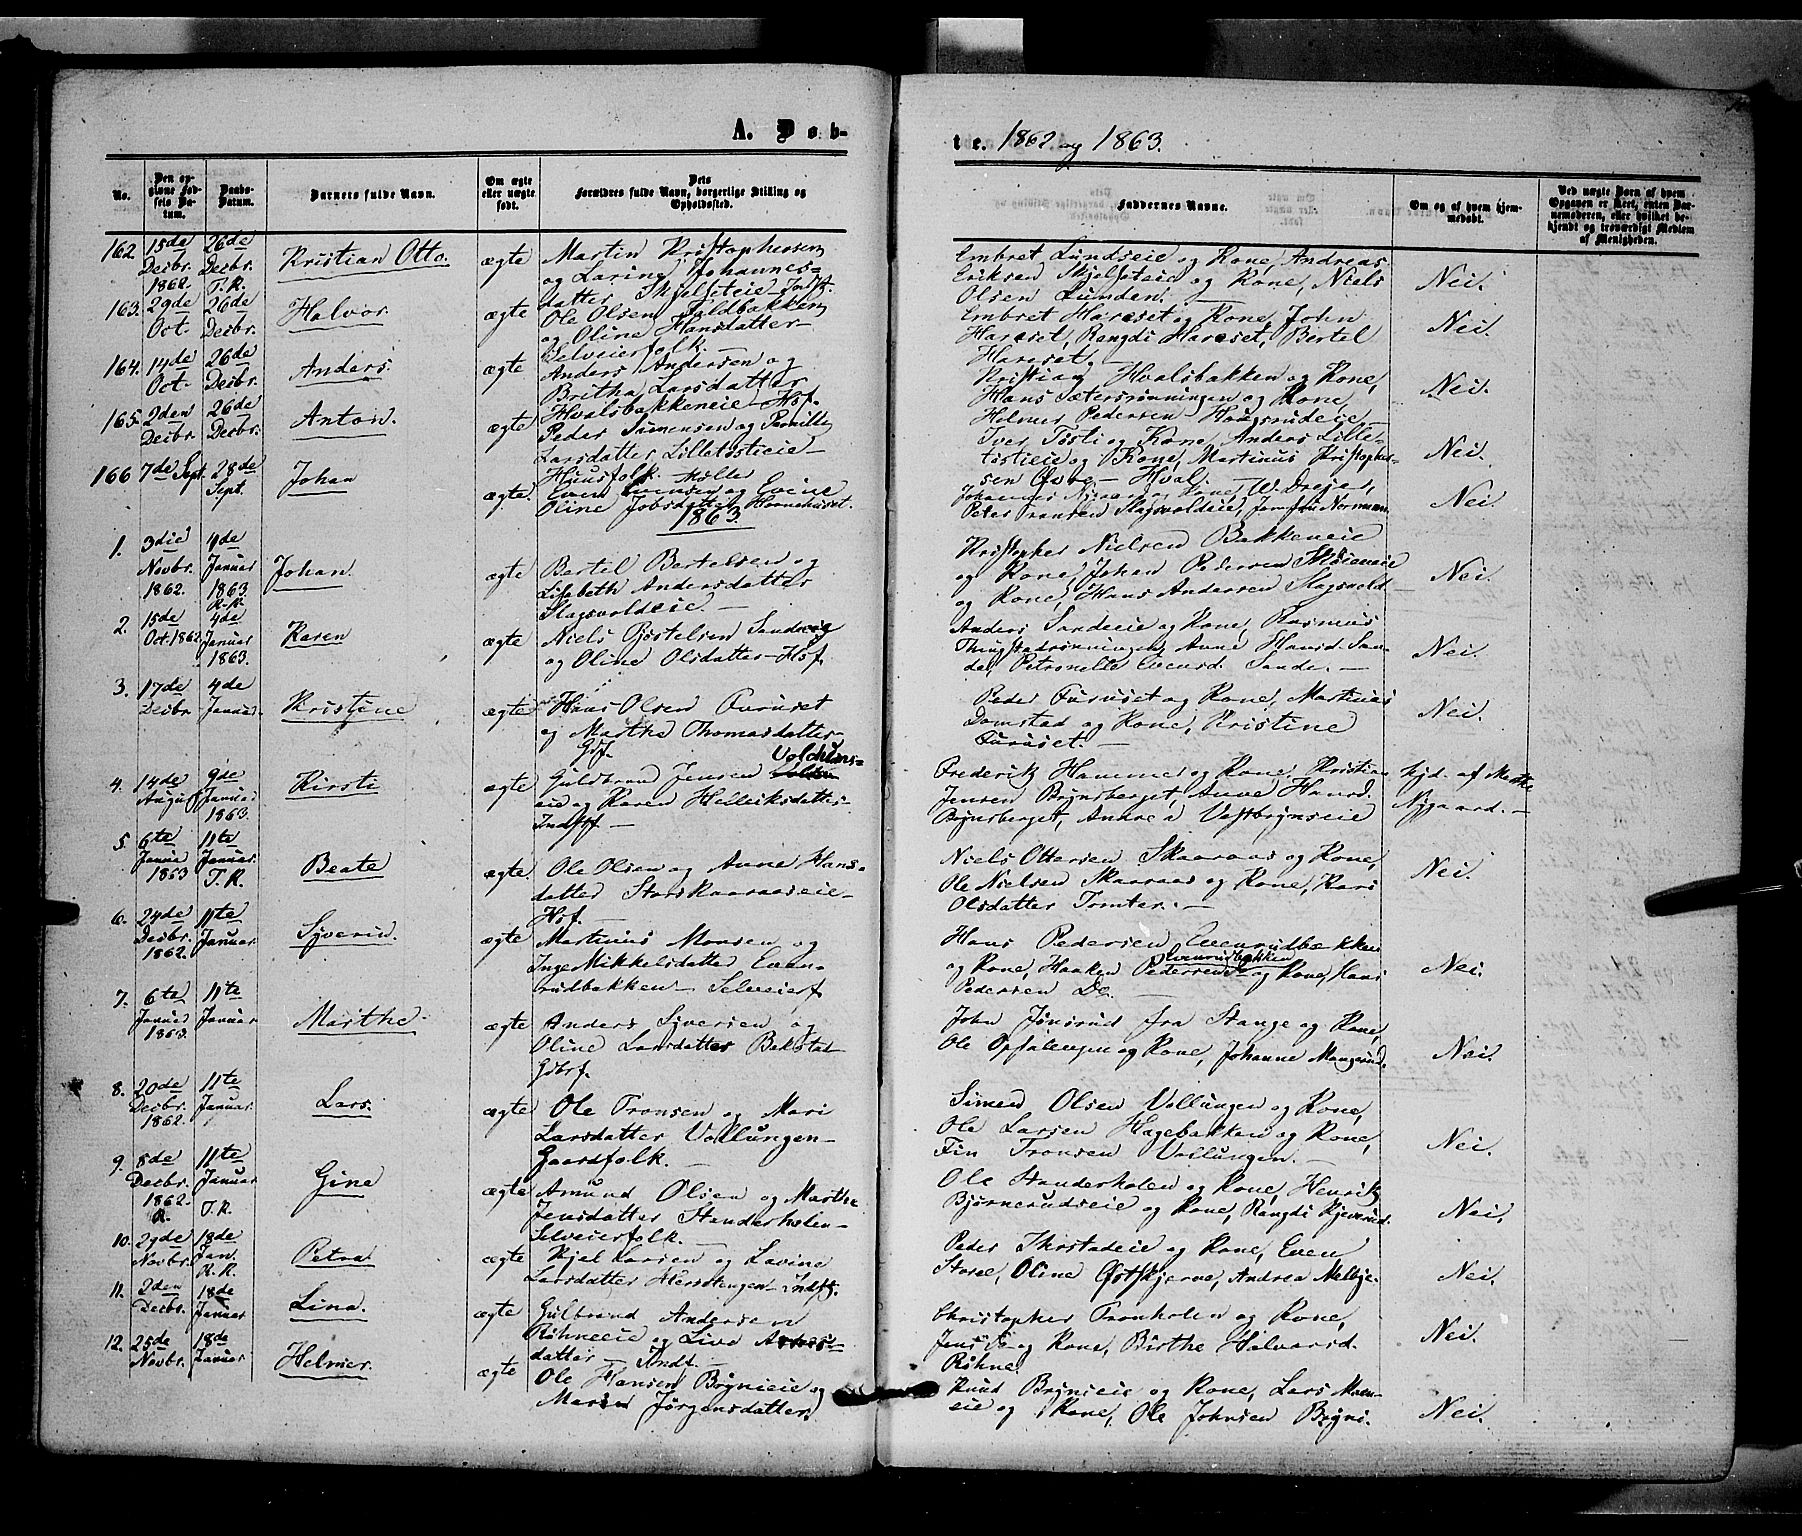 A. Døb-
te. 1862 og 1863.
No.
Den op-
givne Fød-
sels Da-
tum.
Daabs-
Datum.
Barnets fulde Navn.
Om ægte
eller uægte
født.
Dets
Forældres fulde Navn, borgerlige Stilling og
Opholdssted.
Faddernes Navne.
Om og af hvem hjem-
medøbt.
Ved uægte Børn af hvem
Opgaven er skeet, enten Bar-
nemoderen, eller hvilket be-
kjendt og troværdigt Medlem
af Menigheden.
162. 15de Decbr. 1862 26de Decbr. T.K. Kristian Otto. ægte Martin Kristophersen
og Larine Johannes-
datter Skjelseteie Indst.
Embret Lundseie og Kone, Andreas
Eriksen Skjelseteie og Kone, Niels
Olsen Lunden. Nei.
163. 29de Oct. 26de Decbr. Halvor ægte Ole Olsen
og Oline Hansdatter
Selveierfolk.
Embret Haraset og Kone, John
Haraset, Rangdi Haraset, Bertel
Haraset. Nei.
164. 14de Oct. 26de Decbr. Anders. ægte Anders Andersen og
Britha Larsdatter
Hvalsbakkeneie
Kristian Hvalsbakken og Kone,
Hans Sætersrønningen og Kone,
Helmer Pedersen Nei.
165. 2den Decbr. 26de Decbr. Anton. ægte Peder Simensen og Pernille
Larsdatter Lilletøstieie
Huusfolk.
Iver Tøsti og Kone, Anders Lille-
tøstieie og Kone, Martinus Kristopher-
sen Øvre-Hval. Nei.
166 7de Sept. 28de Sept. Johan ægte Even Evensen og
Oline Jobsdatter
Johannes Nygaard og Kone, W. Dreje,
Peter Tronsen Slagsvoldeie, Normann Nei.
1863.
1. 3die Novbr. 1862. 4de Januar 1863. K.K. Johan. ægte Bertel Bertelsen og
Lisebeth Andersdatter
Slagsvoldeie.
Kristopher Nielsen Bakkeneie
og Kone, Johan Pedersen
og Kone, Hans Andersen Slagsvold Nei.
2. 15de Oct. 1862 4de Januar 1863. Karen ægte Niels Sandvig
og Oline Olsdatter
Anders Sandeie og Kone, Rasmus
Thingstadrønningen, Anne Hansd. San-
de, Petronelle Evensd. Sande. Nei.
3. 17de Decbr 4de Januar Kristine ægte Hans Olsen Furuset
og Marthe Thomasdatter
Gdf.
Peder Furuset og Kone, Martinus
Domstad og Kone, Kristine
Furuset. Nei.
4. 14de August 9de Januar 1863. Kirsti ægte Guldbran Jensen
eie og Karen Henriksdatter
Indstf.
Frederik Hammer og Kone, Kristian
Jensen Brynsberget, Anne Hansd.
Brynsberget, Andrea Vestbrynseie hjd. af Marthe
Nygaard.
5. 6te Januar 1863 11te Januar. T.K. Beate ægte. Ole Olsen og Anne Hans-
datter Storskaaraaseie
Hsf.
Niels Ottersen Skaaraas og Kone,
Ole Nielsen Skaaraas og Kone, Kari
Olsdatter Tomter. Nei.
6. 24de Decbr. 1862. 11te Januar. Syverin. ægte Martinus Monsen og
Inge Mikkelsdatter Even-
rudbakken Selveierf
Hans Pedersen Evenrudbakken
og Kone, Haaken Pedersen Evenrudbakken og Kone, Hans
Pedersen Do. Nei.
7. 6te Januar 1863. 11te Januar Marthe ægte Anders Syversen og
Oline Larsdatter Bekstad
Gdbrf.
John Jønsrud fra Stange og Kone,
Ole Opsalengen og Kone, Johanne Mangrud. Nei.
8. 20de Decbr. 1862. 11te Januar. Lars. ægte Ole Tronsen og Mari
Larsdatter Vollungen
Gaardfolk.
Simen Olsen Vollungen og Kone,
Ole Larsen Hagebakken og Kone,
Fin Tronsen Vollungen. Nei.
9. 8de Decbr. 1862. 11te Januar T.K. Gine ægte Amund Olsen og Marthe
Jensdatter Standerholen
Selveierfolk.
Ole Standerholen og Kone, Henrik
Bjørnerudseie og Kone, Rangdi Kjeverud. Nei.
10. 29de Novbr. 18de Jan. K.K. Petra ægte Kjel Larsen og Lavine
Larsdatter Indst.
Peder Thostadeie og Kone, Even
Storee, Oline Østkjerne, Andrea Melbye Nei.
11. 2den Decbr. 18de Januar Lina. ægte Gulbrand Andersen
Røhneeie og Live
datter Indst.
Christopher Tronholen og Kone,
Jens Do og Kone, Birthe Halvorsd.
Røhne. Nei.
12. 25de Novbr. 18de Januar Helmer. ægte Ole Hansen Brynieie og
Maren Jørgensdatter
Knud Brynseie og Kone, Lars
eie og Kone, Ole Johnsen Bryni. Nei.